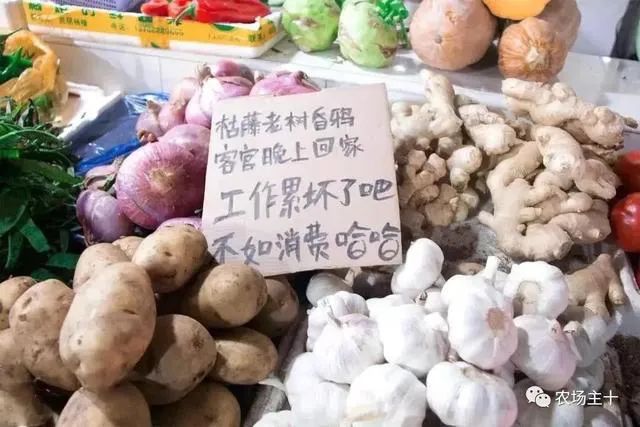 枯藤老树昏鸦
客官晚上回家
工作累坏了吧
不如消费哈哈
农场主十